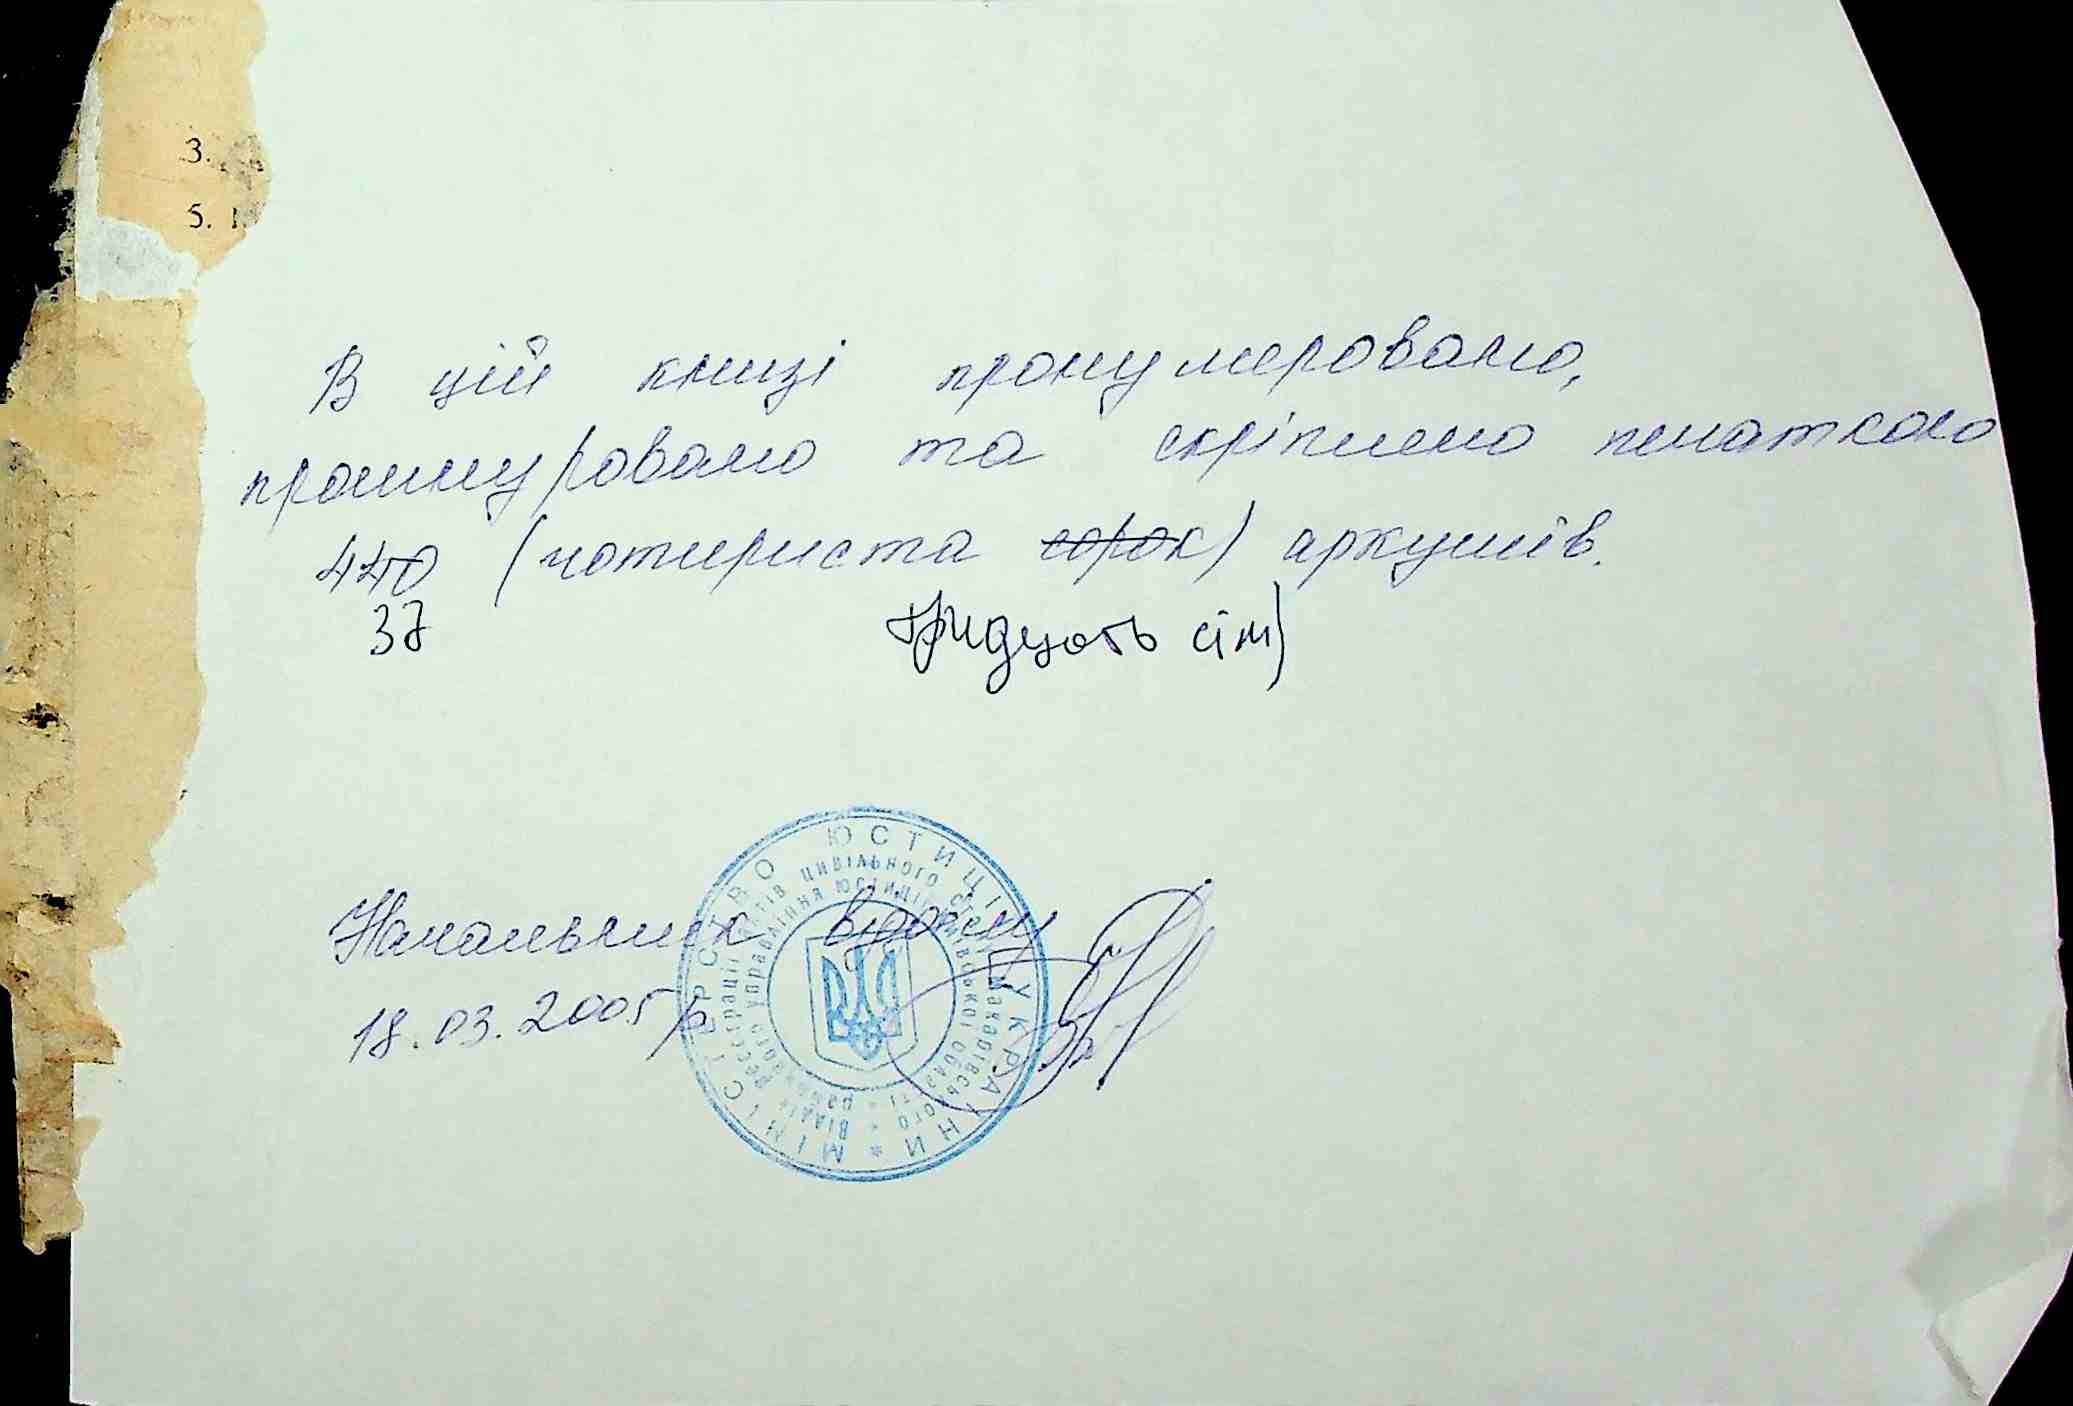 3.
5.
В цій книзі пронумеровано,
прошнуровано та скріплено печаткою
440 (чотириста сорок) аркушів.
37 тридцять сім)
Начальник відділу
18.03.2005 р
МІНІСТЕРСТВО ЮСТИЦІЇ УКРАЇНИ *
Відділ реєстрації актів цивільного стану Макарівського *
районного управління юстиції Київської області *